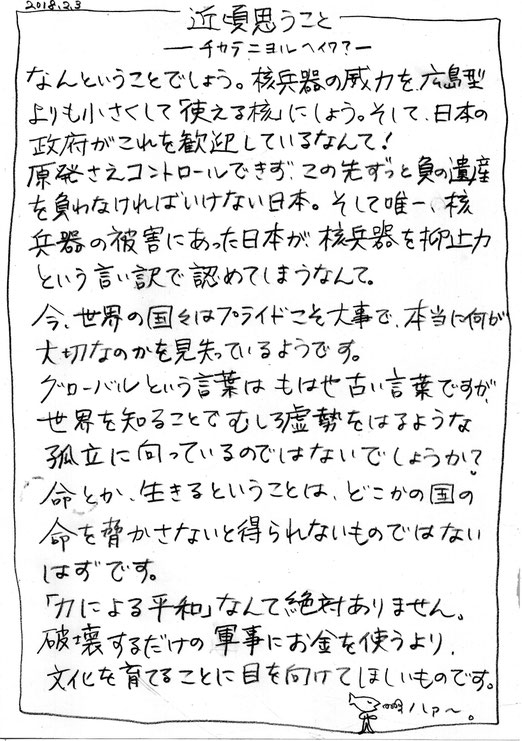 2018.2.3
近頃思うこと
—チカラニヨルヘイワ?—
なんということでしょう。核兵器の威力を、広島型
よりも小さくして「使える核」にしよう。そして、日本の
政府がこれを歓迎しているなんて!
原発さえコントロールできず、この先ずっと負の遺産
を負わなければいけない日本。そして唯一、核
兵器の被害にあった日本が、核兵器を抑止力
という言い訳で認めてしまうなんて。
今、世界の国々はプライドこそ大事で、本当に何が
大切なのかを見失っているようです。
グローバルという言葉は もはや古い言葉ですが、
世界を知ることで むしろ虚勢をはるような
孤立に向っているのではないでしょうか?
命とか、生きるということは、どこかの国の
命を脅かさないと得られないものではない
はずです。
「力による平和」なんて絶対ありません。
破壊するだけの軍事にお金を使うより、
文化を育てることに目を向けてほしいものです。
ハァ〜。